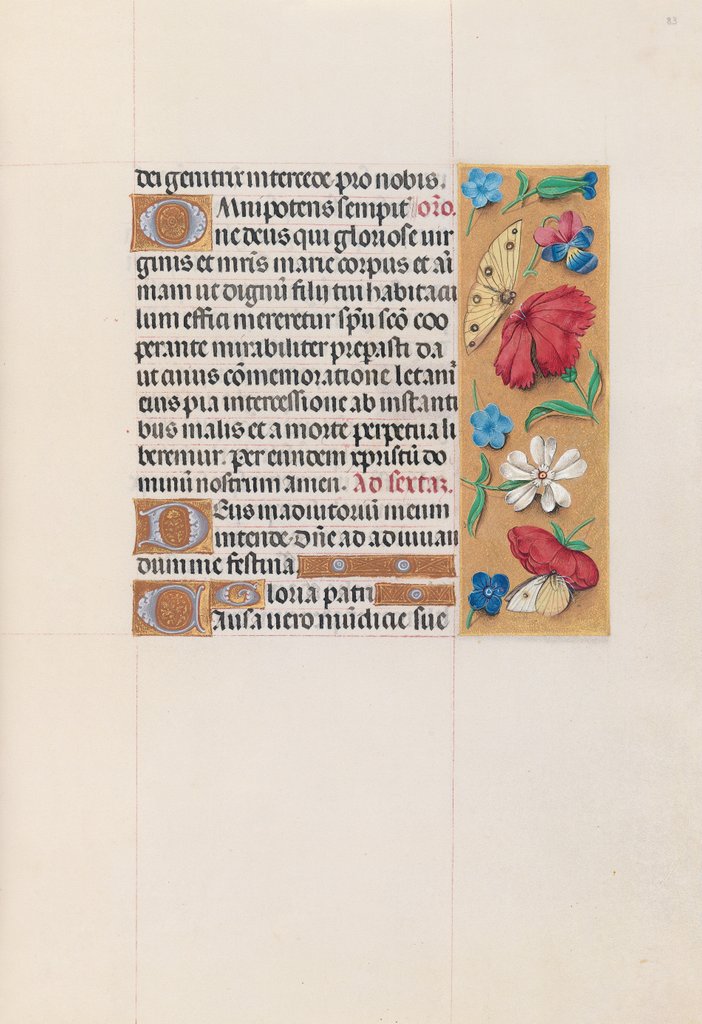 83
dei genitrix intercede pro nobis.
Omnipotens sempit̃ orõ.
ne deus qui gloriose uir
ginis et mr̃is marie corpus et ani
mam ut dignũ filij tui habitacu
lum effici mereretur sp̃u scõ coo
perante mirabiliter prepasti da
ut cuius cõmemoratione letam̃
eius pia intercessione ab instanti
bus malis et a morte perpetua li
beremur. per eundem xp̃istũ do
minũ nostrum Amen. Ad sextaz.
Deus in adiutoriũ meum
intende. Dñe ad adiuuan
dum me festina
Gloria patri
Causa uero mũdicie sue